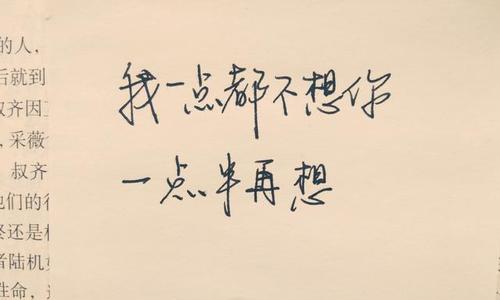 我一点都不想你
一点半再想
的人，
后就到
叔齐因
，采薇
叔齐
他们的
终还是
者陆机
性命，